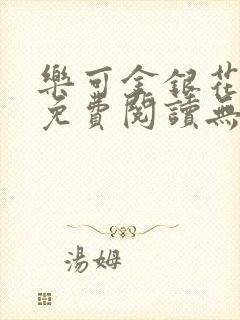 樂可金銀花
免費閱讀無
湯姆